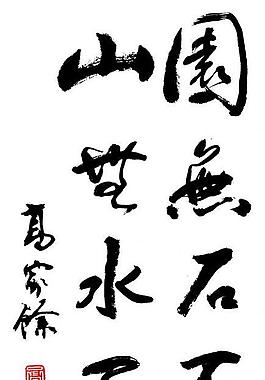 園無石不
山無水不
高家餘